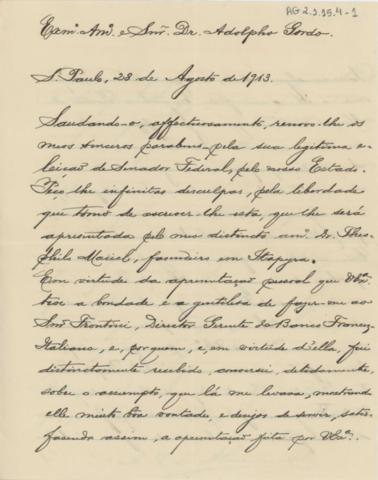 AG 2.1.15.4-1
Exmº. Amº. e Snr. Dr. Adolpho Gordo.
S. Paulo, 28 de Agosto de 1913.
Saudando-o, affectuosamente, renovo-lhe os
meus sinceros parabens pela sua legitima e-
leição de Senador Federal, pelo nosso Estado.
Peço-lhe infinitas desculpas, pela liberdade
que tomo de escrever-lhe esta, que lhe será
apresentada pelo meu distincto amº. Dr. Theo-
philo Maciel, fazendeiro em Itapyra.
Em virtude da apresentação pessoal que V. Exª.
teve a bondade e a gentilesa de fazer-me ao
Snr. Frontini, Director Gerente do Banco Francez-
Italiano, e, por quem, e, em virtude d'ella, fui
distinctamente recebido, conversei, detidamente,
sobre o assumpto, que lá me levava, mostrando
elle muita boa vontade, e desejos de servir, satis-
fazendo assim, a apresentação feita por V. Exª.